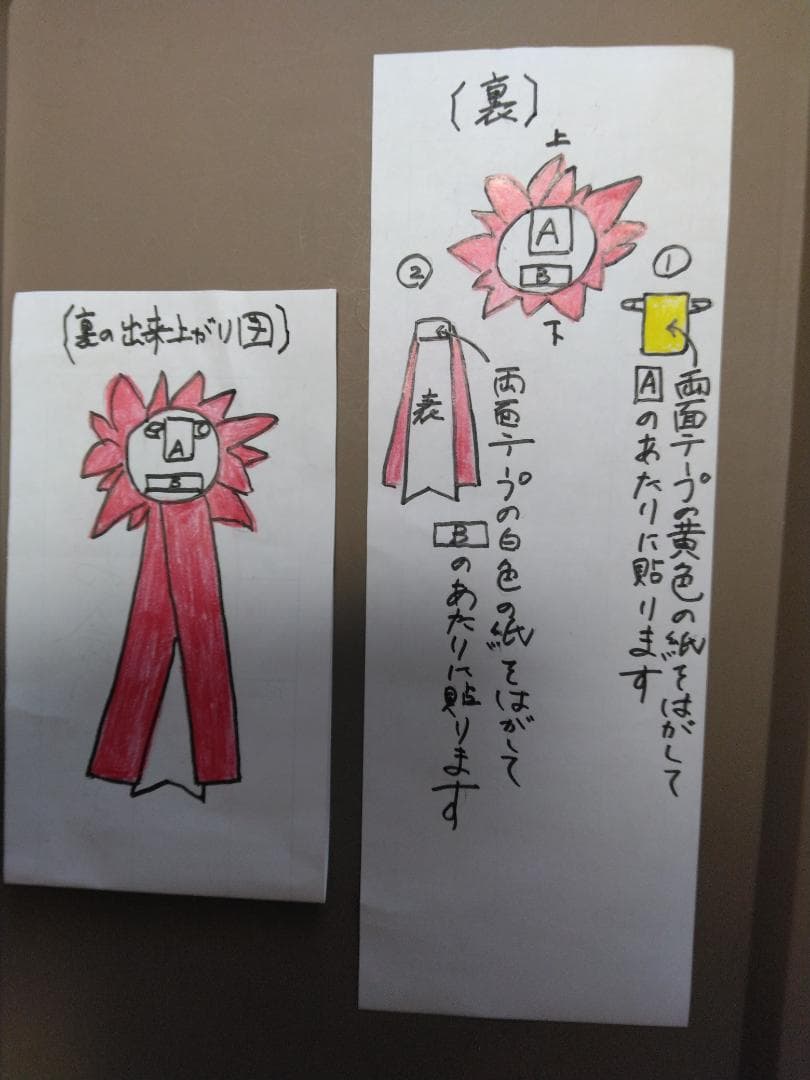 (裏の出来上がり図)
A
B
(裏)
上
A
B
下
①
両面テープの黄色の紙をはがして
Aのあたりに貼ります
②
表
両面テープの白色の紙をはがして
Bのあたりに貼ります